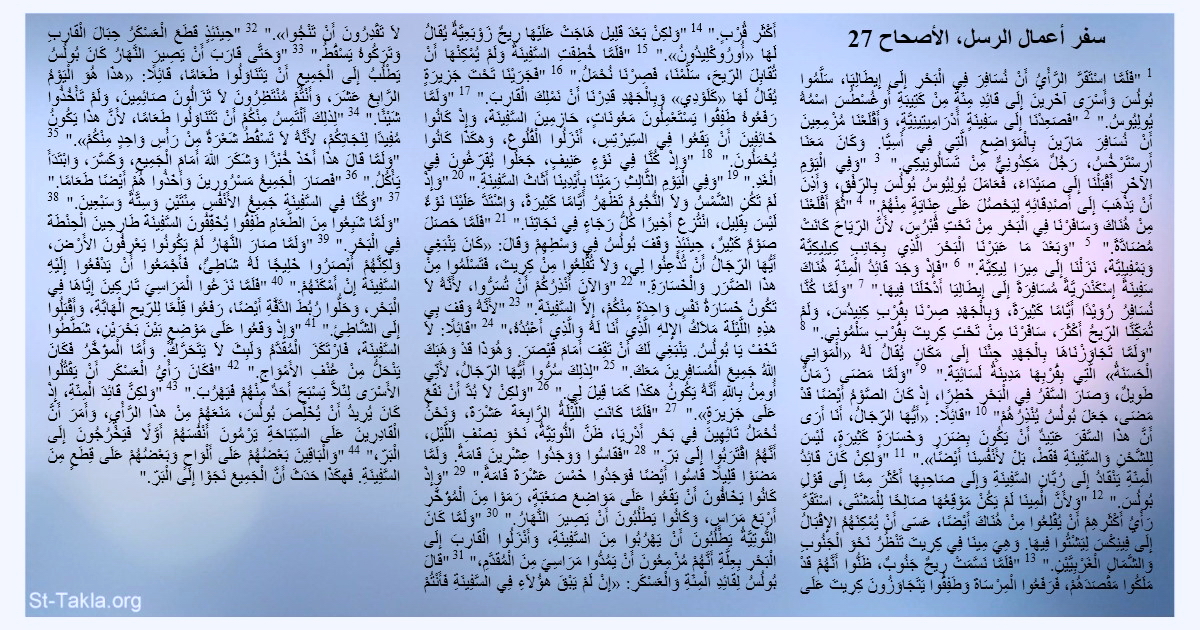 سفر أعمال الرسل، الأصحاح 27
1 "فَلَمَّا اسْتَقَرَّ الرَّأْيُ أَنْ نُسَافِرَ فِي الْبَحْرِ إِلَى إِيطَالِيَا، سَلَّمُوا
بُولُسَ وَأَسْرَى آخَرِينَ إِلَى قَائِدِ مِئَةٍ مِنْ كَتِيبَةِ أُوغُسْطُسَ اسْمُهُ
يُولِيُوسُ." 2 "فَصَعِدْنَا إِلَى سَفِينَةٍ أَدْرَامِيتِينِيَّةٍ، وَأَقْلَعْنَا مُزْمِعِينَ
أَنْ نُسَافِرَ مَارِّينَ بِالْمَوَاضِعِ الَّتِي فِي أَسِيَّا. وَكَانَ مَعَنَا
أَرِسْتَرْخُسُ، رَجُلٌ مَكِدُونِيٌّ مِنْ تَسَالُونِيكِي." 3 "وَفِي الْيَوْمِ
الآخَرِ أَقْبَلْنَا إِلَى صَيْدَاءَ، فَعَامَلَ يُولِيُوسُ بُولُسَ بِالرِّفْقِ، وَأَذِنَ
أَنْ يَذْهَبَ إِلَى أَصْدِقَائِهِ لِيَحْصُلَ عَلَى عِنَايَةٍ مِنْهُمْ." 4 "ثُمَّ أَقْلَعْنَا
مِنْ هُنَاكَ وَسَافَرْنَا فِي الْبَحْرِ مِنْ تَحْتِ قُبْرُسَ، لأَنَّ الرِّيَاحَ كَانَتْ
مُضَادَّةً." 5 "وَبَعْدَ مَا عَبَرْنَا الْبَحْرَ الَّذِي بِجَانِبِ كِيلِيكِيَّةَ
وَبَمْفِيلِيَّةَ، نَزَلْنَا إِلَى مِيرَا لِيكِيَّةَ." 6 "فَإِذْ وَجَدَ قَائِدُ الْمِئَةِ هُنَاكَ
سَفِينَةً إِسْكَنْدَرِيَّةً مُسَافِرَةً إِلَى إِيطَالِيَا أَدْخَلَنَا فِيهَا." 7 "وَلَمَّا كُنَّا
نُسَافِرُ رُوَيْدًا أَيَّامًا كَثِيرَةً، وَبِالْجَهْدِ صِرْنَا بِقُرْبِ كِنِيدُسَ، وَلَمْ
تُمَكِّنَّا الرِّيحُ أَكْثَرَ، سَافَرْنَا مِنْ تَحْتِ كِرِيتَ بِقُرْبِ سَلْمُونِي." 8
"وَلَمَّا تَجَاوَزْنَاهَا بِالْجَهْدِ جِئْنَا إِلَى مَكَانٍ يُقَالُ لَهُ «الْمَوَانِي
الْحَسَنَةُ» الَّتِي بِقُرْبِهَا مَدِينَةُ لَسَائِيَةَ." 9 "وَلَمَّا مَضَى زَمَانٌ
طَوِيلٌ، وَصَارَ السَّفَرُ فِي الْبَحْرِ خَطِرًا، إِذْ كَانَ الصَّوْمُ أَيْضًا قَدْ
مَضَى، جَعَلَ بُولُسُ يُنْذِرُهُمْ" 10 "قَائِلًا: «أَيُّهَا الرِّجَالُ، أَنَا أَرَى
أَنَّ هذَا السَّفَرَ عَتِيدٌ أَنْ يَكُونَ بِضَرَرٍ وَخَسَارَةٍ كَثِيرَةٍ، لَيْسَ
لِلشَّحْنِ وَالسَّفِينَةِ فَقَطْ، بَلْ لأَنْفُسِنَا أَيْضًا»." 11 "وَلكِنْ كَانَ قَائِدُ
الْمِئَةِ يَنْقَادُ إِلَى رُبَّانِ السَّفِينَةِ وَإِلَى صَاحِبِهَا أَكْثَرَ مِمَّا إِلَى قَوْلِ
بُولُسَ." 12 "وَلأَنَّ الْمِينَا لَمْ يَكُنْ مَوْقِعُهَا صَالِحًا لِلْمَشْتَى، اسْتَقَرَّ
رَأْيُ أَكْثَرِهِمْ أَنْ يُقْلِعُوا مِنْ هُنَاكَ أَيْضًا، عَسَى أَنْ يُمْكِنَهُمُ الإِقْبَالُ
إِلَى فِينِكْسَ لِيَشْتُوا فِيهَا. وَهِيَ مِينَا فِي كِرِيتَ تَنْظُرُ نَحْوَ الْجَنُوبِ
وَالشَّمَالِ الْغَرْبِيَّيْنِ." 13 "فَلَمَّا نَسَّمَتْ رِيحٌ جَنُوبٌ، ظَنُّوا أَنَّهُمْ قَدْ
مَلَكُوا مَقْصَدَهُمْ، فَرَفَعُوا الْمِرْسَاةَ وَطَفِقُوا يَتَجَاوَزُونَ كِرِيتَ عَلَى
أَكْثَرِ قُرْبٍ." 14 "وَلكِنْ بَعْدَ قَلِيل هَاجَتْ عَلَيْهَا رِيحٌ زَوْبَعِيَّةٌ يُقَالُ
لَهَا «أُورُوكْلِيدُونُ»." 15 "فَلَمَّا خُطِفَتِ السَّفِينَةُ وَلَمْ يُمْكِنْهَا أَنْ
تُقَابِلَ الرِّيحَ، سَلَّمْنَا، فَصِرْنَا نُحْمَلُ." 16 "فَجَرَيْنَا تَحْتَ جَزِيرَةٍ
يُقَالُ لَهَا «كَلَوْدِي» وَبِالْجَهْدِ قَدِرْنَا أَنْ نَمْلِكَ الْقَارِبَ." 17 "وَلَمَّا
رَفَعُوهُ طَفِقُوا يَسْتَعْمِلُونَ مَعُونَاتٍ، حَازِمِينَ السَّفِينَةَ، وَإِذْ كَانُوا
خَائِفِينَ أَنْ يَقَعُوا فِي السِّيرْتِسِ، أَنْزَلُوا الْقُلُوعَ، وَهكَذَا كَانُوا
يُحْمَلُونَ." 18 "وَإِذْ كُنَّا فِي نَوْءٍ عَنِيفٍ، جَعَلُوا يُفَرِّغُونَ فِي
الْغَدِ." 19 "وَفِي الْيَوْمِ الثَّالِثِ رَمَيْنَا بِأَيْدِينَا أَثَاثَ السَّفِينَةِ." 20 "وَإِذْ
لَمْ تَكُنِ الشَّمْسُ وَلاَ النُّجُومُ تَظْهَرُ أَيَّامًا كَثِيرَةً، وَاشْتَدَّ عَلَيْنَا نَوْءٌ
لَيْسَ بِقَلِيل، انْتُزِعَ أَخِيرًا كُلُّ رَجَاءٍ فِي نَجَاتِنَا." 21 "فَلَمَّا حَصَلَ
صَوْمٌ كَثِيرٌ، حِينَئِذٍ وَقَفَ بُولُسُ فِي وَسْطِهِمْ وَقَالَ: «كَانَ يَنْبَغِي
أَيُّهَا الرِّجَالُ أَنْ تُذْعِنُوا لِي، وَلاَ تُقْلِعُوا مِنْ كِرِيتَ، فَتَسْلَمُوا مِنْ
هذَا الضَّرَرِ وَالْخَسَارَةِ." 22 "وَالآنَ أُنْذِرُكُمْ أَنْ تُسَرُّوا، لأَنَّهُ لاَ
تَكُونُ خَسَارَةُ نَفْسٍ وَاحِدَةٍ مِنْكُمْ، إِلاَّ السَّفِينَةَ." 23 "لأَنَّهُ وَقَفَ بِي
هذِهِ اللَّيْلَةَ مَلاَكُ الإِلهِ الَّذِي أَنَا لَهُ وَالَّذِي أَعْبُدُهُ،" 24 "قَائِلًا: لاَ
تَخَفْ يَا بُولُسُ. يَنْبَغِي لَكَ أَنْ تَقِفَ أَمَامَ قَيْصَرَ. وَهُوَذَا قَدْ وَهَبَكَ
اللهُ جَمِيعَ الْمُسَافِرِينَ مَعَكَ." 25 "لِذلِكَ سُرُّوا أَيُّهَا الرِّجَالُ، لأَنِّي
أُومِنُ بِاللهِ أَنَّهُ يَكُونُ هكَذَا كَمَا قِيلَ لِي." 26 "وَلكِنْ لاَ بُدَّ أَنْ نَقَعَ
عَلَى جَزِيرَةٍ»." 27 "فَلَمَّا كَانَتِ اللَّيْلَةُ الرَّابِعَةَ عَشْرَةَ، وَنَحْنُ
نُحْمَلُ تَائِهِينَ فِي بَحْرِ أَدْرِيَا، ظَنَّ النُّوتِيَّةُ، نَحْوَ نِصْفِ اللَّيْلِ،
أَنَّهُمُ اقْتَرَبُوا إِلَى بَرّ." 28 "فَقَاسُوا وَوَجَدُوا عِشْرِينَ قَامَةً. وَلَمَّا
مَضَوْا قَلِيلًا قَاسُوا أَيْضًا فَوَجَدُوا خَمْسَ عَشْرَةَ قَامَةً." 29 "وَإِذْ
كَانُوا يَخَافُونَ أَنْ يَقَعُوا عَلَى مَوَاضِعَ صَعْبَةٍ، رَمَوْا مِنَ الْمُؤَخَّرِ
أَرْبَعَ مَرَاسٍ، وَكَانُوا يَطْلُبُونَ أَنْ يَصِيرَ النَّهَارُ." 30 "وَلَمَّا كَانَ
النُّوتِيَّةُ يَطْلُبُونَ أَنْ يَهْرُبُوا مِنَ السَّفِينَةِ، وَأَنْزَلُوا الْقَارِبَ إِلَى
الْبَحْرِ بِعِلَّةِ أَنَّهُمْ مُزْمِعُونَ أَنْ يَمُدُّوا مَرَاسِيَ مِنَ الْمُقَدَّمِ،" 31 "قَالَ
بُولُسُ لِقَائِدِ الْمِئَةِ وَالْعَسْكَرِ: «إِنْ لَمْ يَبْقَ هؤُلاَءِ فِي السَّفِينَةِ فَأَنْتُمْ
لاَ تَقْدِرُونَ أَنْ تَنْجُوا»." 32 "حِينَئِذٍ قَطَعَ الْعَسْكَرُ حِبَالَ الْقَارِبِ
وَتَرَكُوهُ يَسْقُطُ." 33 "وَحَتَّى قَارَبَ أَنْ يَصِيرَ النَّهَارُ كَانَ بُولُسُ
يَطْلُبُ إِلَى الْجَمِيعِ أَنْ يَتَنَاوَلُوا طَعَامًا، قَائِلًا: «هذَا هُوَ الْيَوْمُ
الرَّابِعَ عَشَرَ، وَأَنْتُمْ مُنْتَظِرُونَ لاَ تَزَالُونَ صَائِمِينَ، وَلَمْ تَأْخُذُوا
شَيْئًا." 34 "لِذلِكَ أَلْتَمِسُ مِنْكُمْ أَنْ تَتَنَاوَلُوا طَعَامًا، لأَنَّ هذَا يَكُونُ
مُفِيدًا لِنَجَاتِكُمْ، لأَنَّهُ لاَ تَسْقُطُ شَعْرَةٌ مِنْ رَأْسِ وَاحِدٍ مِنْكُمْ»." 35
"وَلَمَّا قَالَ هذَا أَخَذَ خُبْزًا وَشَكَرَ اللهَ أَمَامَ الْجَمِيعِ، وَكَسَّرَ، وَابْتَدَأَ
يَأْكُلُ." 36 "فَصَارَ الْجَمِيعُ مَسْرُورِينَ وَأَخَذُوا هُمْ أَيْضًا طَعَامًا."
37 "وَكُنَّا فِي السَّفِينَةِ جَمِيعُ الأَنْفُسِ مِئَتَيْنِ وَسِتَّةً وَسَبْعِينَ." 38
"وَلَمَّا شَبِعُوا مِنَ الطَّعَامِ طَفِقُوا يُخَفِّفُونَ السَّفِينَةَ طَارِحِينَ الْحِنْطَةَ
فِي الْبَحْرِ." 39 "وَلَمَّا صَارَ النَّهَارُ لَمْ يَكُونُوا يَعْرِفُونَ الأَرْضَ،
وَلكِنَّهُمْ أَبْصَرُوا خَلِيجًا لَهُ شَاطِئٌ، فَأَجْمَعُوا أَنْ يَدْفَعُوا إِلَيْهِ
السَّفِينَةَ إِنْ أَمْكَنَهُمْ." 40 "فَلَمَّا نَزَعُوا الْمَرَاسِيَ تَارِكِينَ إِيَّاهَا فِي
الْبَحْرِ، وَحَلُّوا رُبُطَ الدَّفَّةِ أَيْضًا، رَفَعُوا قِلْعًا لِلرِّيحِ الْهَابَّةِ، وَأَقْبَلُوا
إِلَى الشَّاطِئِ." 41 "وَإِذْ وَقَعُوا عَلَى مَوْضِعٍ بَيْنَ بَحْرَيْنِ، شَطَّطُوا
السَّفِينَةَ، فَارْتَكَزَ الْمُقَدَّمُ وَلَبِثَ لاَ يَتَحَرَّكُ. وَأَمَّا الْمؤَخَّرُ فَكَانَ
يَنْحَلُّ مِنْ عُنْفِ الأَمْوَاجِ." 42 "فَكَانَ رَأْيُ الْعَسْكَرِ أَنْ يَقْتُلُوا
الأَسْرَى لِئَلاَّ يَسْبَحَ أَحَدٌ مِنْهُمْ فَيَهْرُبَ." 43 "وَلكِنَّ قَائِدَ الْمِئَةِ، إِذْ
كَانَ يُرِيدُ أَنْ يُخَلِّصَ بُولُسَ، مَنَعَهُمْ مِنْ هذَا الرَّأْيِ، وَأَمَرَ أَنَّ
الْقَادِرِينَ عَلَى السِّبَاحَةِ يَرْمُونَ أَنْفُسَهُمْ أَوَّلًا فَيَخْرُجُونَ إِلَى
الْبَرِّ،" 44 "وَالْبَاقِينَ بَعْضُهُمْ عَلَى أَلْوَاحٍ وَبَعْضُهُمْ عَلَى قِطَعٍ مِنَ
السَّفِينَةِ. فَهكَذَا حَدَثَ أَنَّ الْجَمِيعَ نَجَوْا إِلَى الْبَرِّ."
St-Takla.org